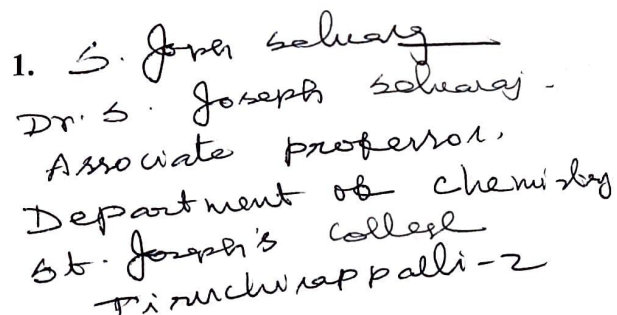 1. S. Joseph Selvaraj
Dr. S. Joseph Selvaraj.
Associate professor,
Department of chemistry
St. Joseph's College
Tiruchirappalli-2